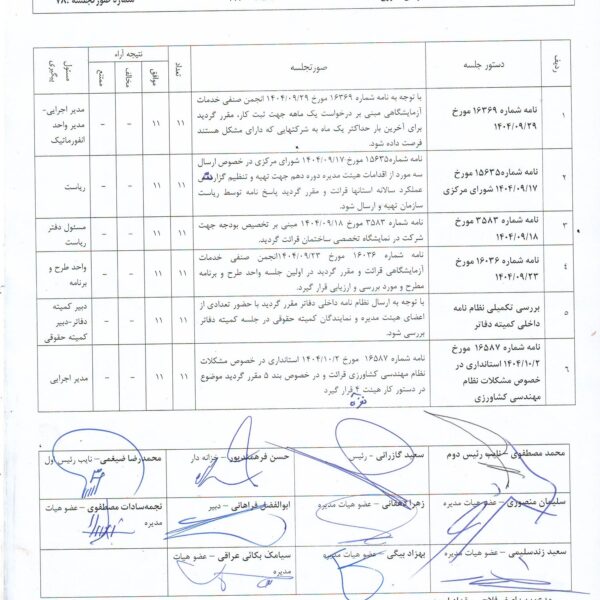 شماره صورتجلسه : ۷۸
ردیف
دستور جلسه
صورتجلسه
تعداد
نتیجه آراء
موافق
مخالف
ممتنع
مسئول پیگیری
۱
نامه شماره ۱۶۳۶۹ مورخ
۱۴۰۴/۰۹/۲۹
با توجه به نامه شماره ۱۶۳۶۹ مورخ ۱۴۰۴/۰۹/۲۹ انجمن صنفی خدمات
آزمایشگاهی مبنی بر درخواست یک ماهه جهت ثبت کار، مقرر گردید
برای آخرین بار حداکثر یک ماه به شرکتهایی که دارای مشکل هستند
فرصت داده شود.
۱۱
۱۱
–
–
مدیر اجرایی-
مدیر واحد
انفورماتیک
۲
نامه شماره ۱۵۶۳۵ مورخ
۱۴۰۴/۰۹/۱۷ شورای مرکزی
نامه شماره۱۵۶۳۵ مورخ ۱۴۰۴/۰۹/۱۷ شورای مرکزی در خصوص ارسال
سه مورد از اقدامات هیئت مدیره دوره دهم جهت تهیه و تنظیم
عملکرد سالانه استانها قرائت و مقرر گردید پاسخ نامه توسط ریاست
سازمان تهیه و ارسال شود.
۱۱
۱۱
–
–
ریاست
۳
نامه شماره ۳۵۸۳ مورخ
۱۴۰۴/۰۹/۱۸
نامه شماره ۳۵۸۳ مورخ ۱۴۰۴/۰۹/۱۸ مبنی بر تخصیص بودجه جهت
شرکت در نمایشگاه تخصصی ساختمان قرائت گردید.
۱۱
۱۱
–
–
مسئول دفتر
ریاست
۴
نامه شماره ۱۶۰۳۶ مورخ
۱۴۰۴/۰۹/۲۳
نامه شماره ۱۶۰۳۶ مورخ ۱۴۰۴/۰۹/۲۳انجمن صنفی خدمات
آزمایشگاهی قرائت و مقرر گردید در اولین جلسه واحد طرح و برنامه
مطرح و مورد بررسی و ارزیابی قرار گیرد.
۱۱
۱۱
–
–
واحد طرح و
برنامه
۵
بررسی تکمیلی نظام نامه
داخلی کمیته دفاتر
با توجه به ارسال نظام نامه داخلی دفاتر مقرر گردید با حضور تعدادی از
اعضای هیئت مدیره و نمایندگان کمیته حقوقی در جلسه کمیته دفاتر
بررسی شود.
۱۱
۱۱
–
–
دبیر کمیته
دفاتر-دبیر
کمیته حقوقی
۶
نامه شماره ۱۶۵۸۷ مورخ
۱۴۰۴/۱۰/۲ استانداری در
خصوص مشکلات نظام
مهندسی کشاورزی
نامه شماره ۱۶۵۸۷ مورخ ۱۴۰۴/۱۰/۲ استانداری در خصوص مشکلات
نظام مهندسی کشاورزی قرائت و در خصوص بند ۵ مقرر گردید موضوع
در دستور کار هیئت ۴ قرار گیرد
۱۱
۱۱
–
–
مدیر اجرایی
محمد مصطفوی – نایب رئیس دوم
سعید گازرانی – رئیس
حسن فرهمندپور – خزانه دار
محمدرضا ضیغمی – نایب رئیس اول
سلیمان منصوری – عضو هیات مدیره
زهرا دهقانی – عضو هیات مدیره
ابوالفضل فراهانی – دبیر
نجمه‌سادات مصطفوی – عضو هیات
مدیره
سعید زندسلیمی – عضو هیات مدیره
بهزاد بیگی – عضو هیات مدیره
سیامک بکائی عراقی – عضو هیات
مدیره